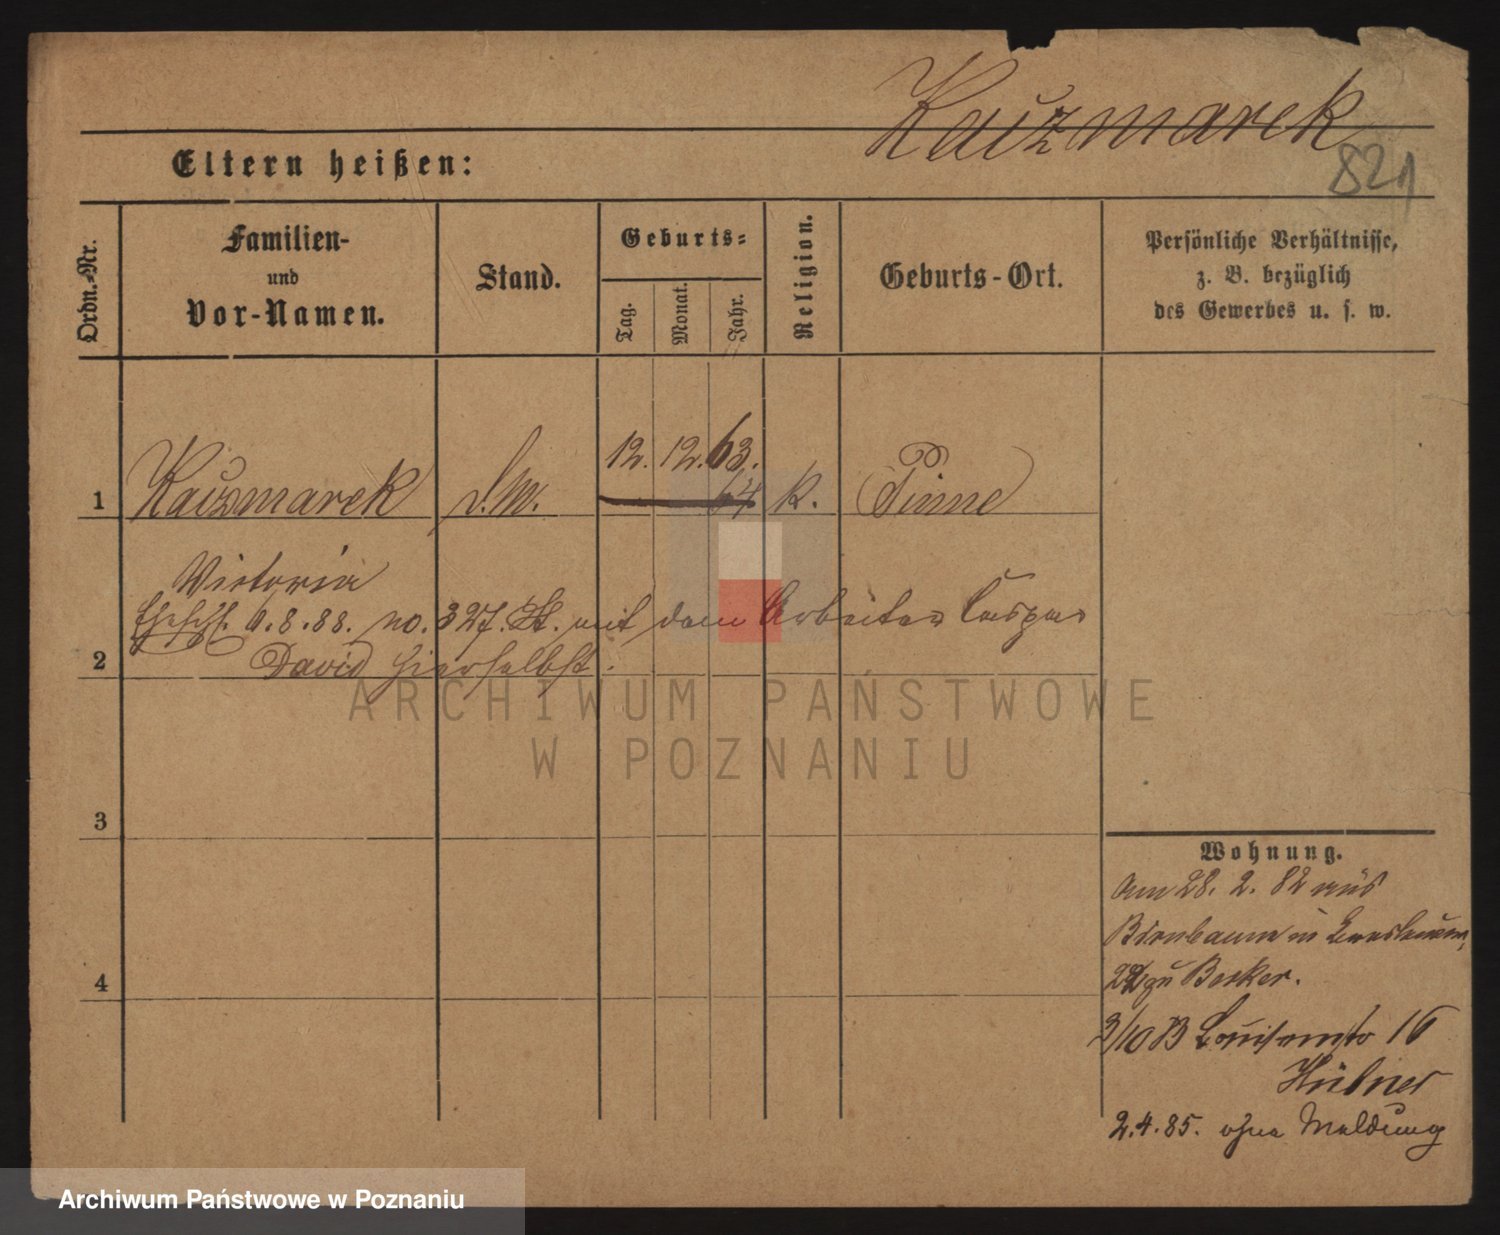 Kaczmarek
821
Eltern heißen:
Ordn.-Nr.
Familien-
und
Vor-Namen.
Stand.
Geburts-
Tag.
Monat.
Jahr.
Religion.
Geburts-Ort.
Persönliche Verhältnisse,
z. B. bezüglich
des Gewerbes u. s. w.
12. 12. 63.
1 Kaczmarek d.M. 64 k. Pinne
Victoria
Ehesch. 6.8.88. no. 327. St. mit dem Arbeiter Caspar
2 David hierselbst.
ARCHIWUM PAŃSTWOWE
W POZNANIU
3
Wohnung.
am 28. 2. 82 aus
Birnbaum in
4
22 zu Becker.
3/10 83 Louisenstr 16
Hübner
2.4.85. ohne Meldung
Archiwum Państwowe w Poznaniu